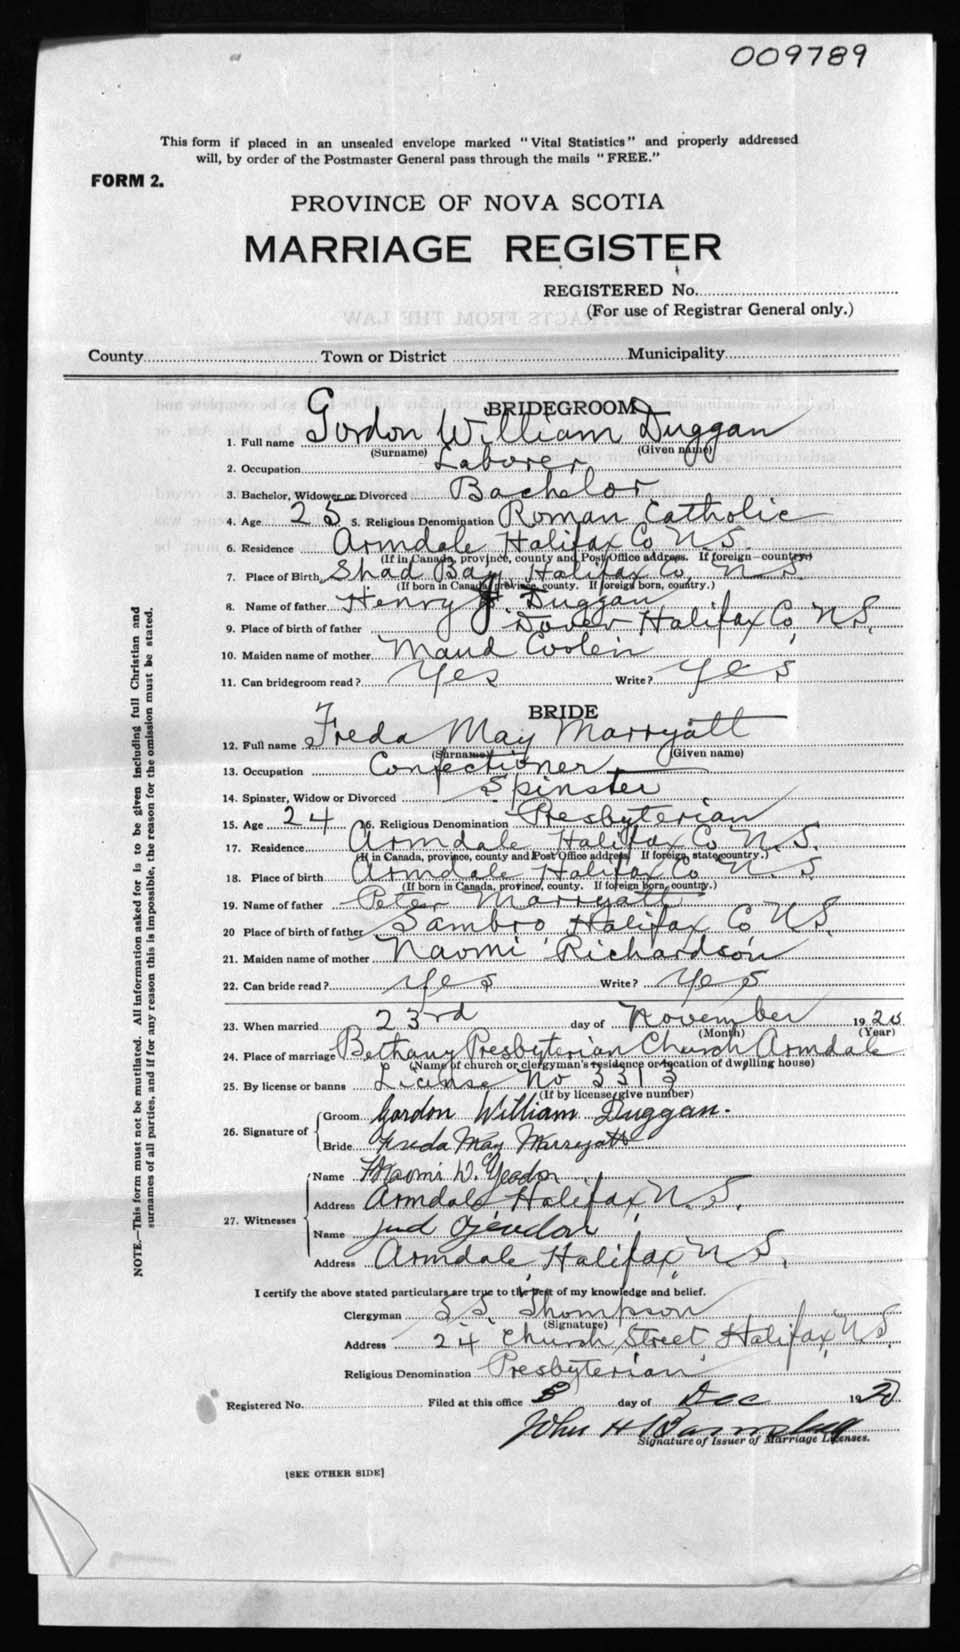 009789
This form if placed in an unsealed envelope marked "Vital Statistics" and properly addressed
will, by order of the Postmaster General pass through the mails "FREE."
FORM 2.
PROVINCE OF NOVA SCOTIA
MARRIAGE REGISTER
REGISTERED No.
(For use of Registrar General only.)
County Town or District Municipality
BRIDEGROOM
1. Full name Gordon William Duggan
(Surname) (Given name)
2. Occupation Laborer
3. Bachelor, Widower or Divorced Bachelor
4. Age 25 5. Religious Denomination Roman Catholic
6. Residence Armdale Halifax Co N.S.
(If in Canada, province, county and Post Office address. If foreign—country.)
7. Place of Birth Shad Bay Halifax Co N S.
(If born in Canada, province, county. If foreign born, country.)
8. Name of father Henry Duggan
9. Place of birth of father Dover Halifax Co, N.S.
10. Maiden name of mother Maud Coolen
11. Can bridegroom read? Yes Write? Yes
BRIDE
12. Full name Freda May Marryatt
(Surname) (Given name)
13. Occupation Confectioner
14. Spinster, Widow or Divorced Spinster
15. Age 24 16. Religious Denomination Presbyterian
17. Residence Armdale Halifax Co N.S.
(If in Canada, province, county and Post Office address. If foreign, state country.)
18. Place of birth Armdale Halifax Co N.S
(If born in Canada, province, county. If foreign born, country.)
19. Name of father Peter Marryatt
20 Place of birth of father Sambro Halifax Co N.S.
21. Maiden name of mother Naomi Richardson
22. Can bride read? Yes Write? Yes
23. When married 23rd day of November 1920
(Month) (Year)
24. Place of marriage Bethany Presbyterian Church Armdale
(Name of church or clergyman's residence or location of dwelling house)
25. By license or banns License No 3313
(If by license, give number)
26. Signature of
Groom Gordon William Duggan.
Bride Freda May Marryatt
27. Witnesses
Name Naomi W. Yeadon
Address Armdale Halifax, N.S.
Name Jud Yeadon
Address Armdale, Halifax, N S.
I certify the above stated particulars are true to the best of my knowledge and belief.
Clergyman Thompson
(Signature)
Address 24 Church Street, Halifax, N.S.
Religious Denomination Presbyterian
Registered No. Filed at this office day of Dec 1920
John H
Signature of Issuer of Marriage Licenses.
[SEE OTHER SIDE]
NOTE.—This form must not be mutilated. All information asked for is to be given including full Christian and
surnames of all parties, and if for any reason this is impossible, the reason for the omission must be stated.